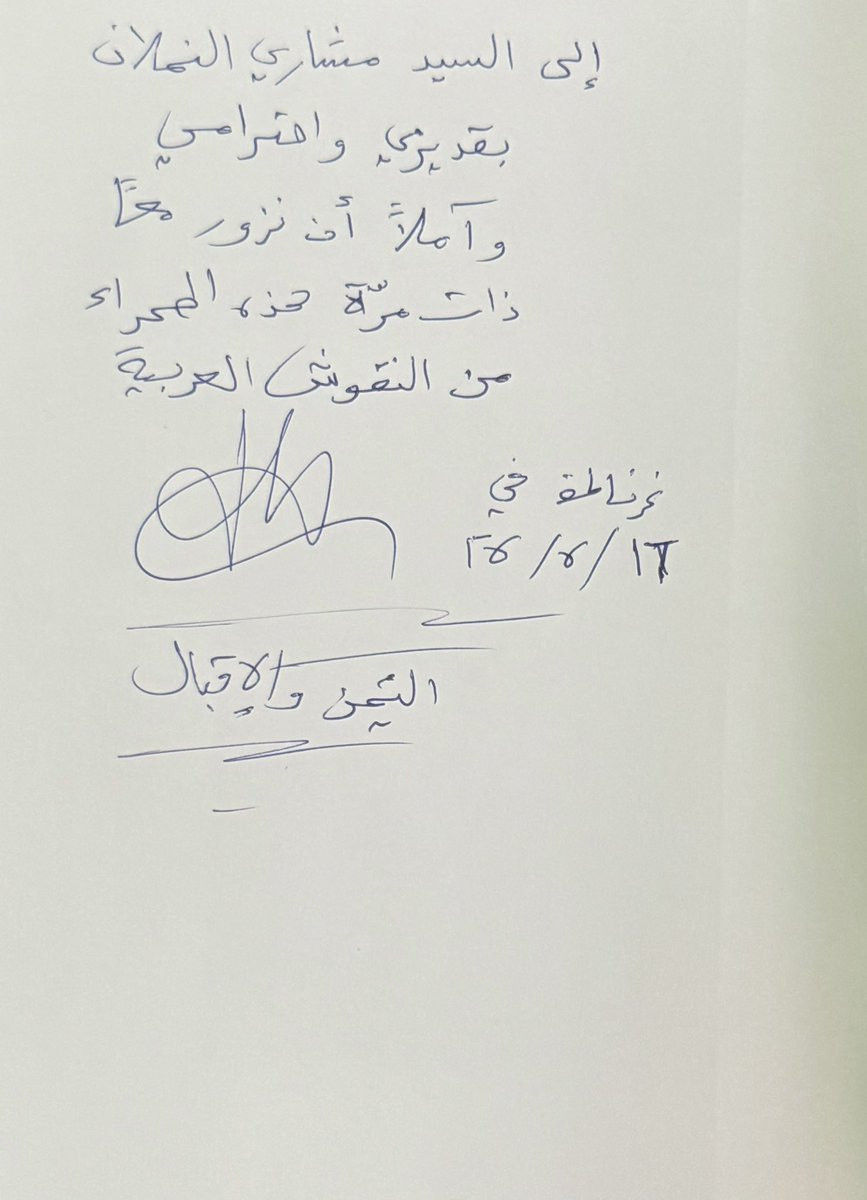 إلى السيد مشاري النملان
بقديري واحترامي
وآملاً أن نزور معاً
ذات مرّة هذه الصحراء
من النقوش العربية
غرناطة في
اليُمن والإقبال